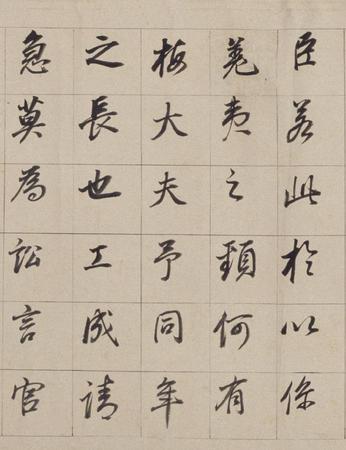 臣若此於以係
羌夷之頸何有
梅大夫予同年
之長也工成請
急莫為訟言官